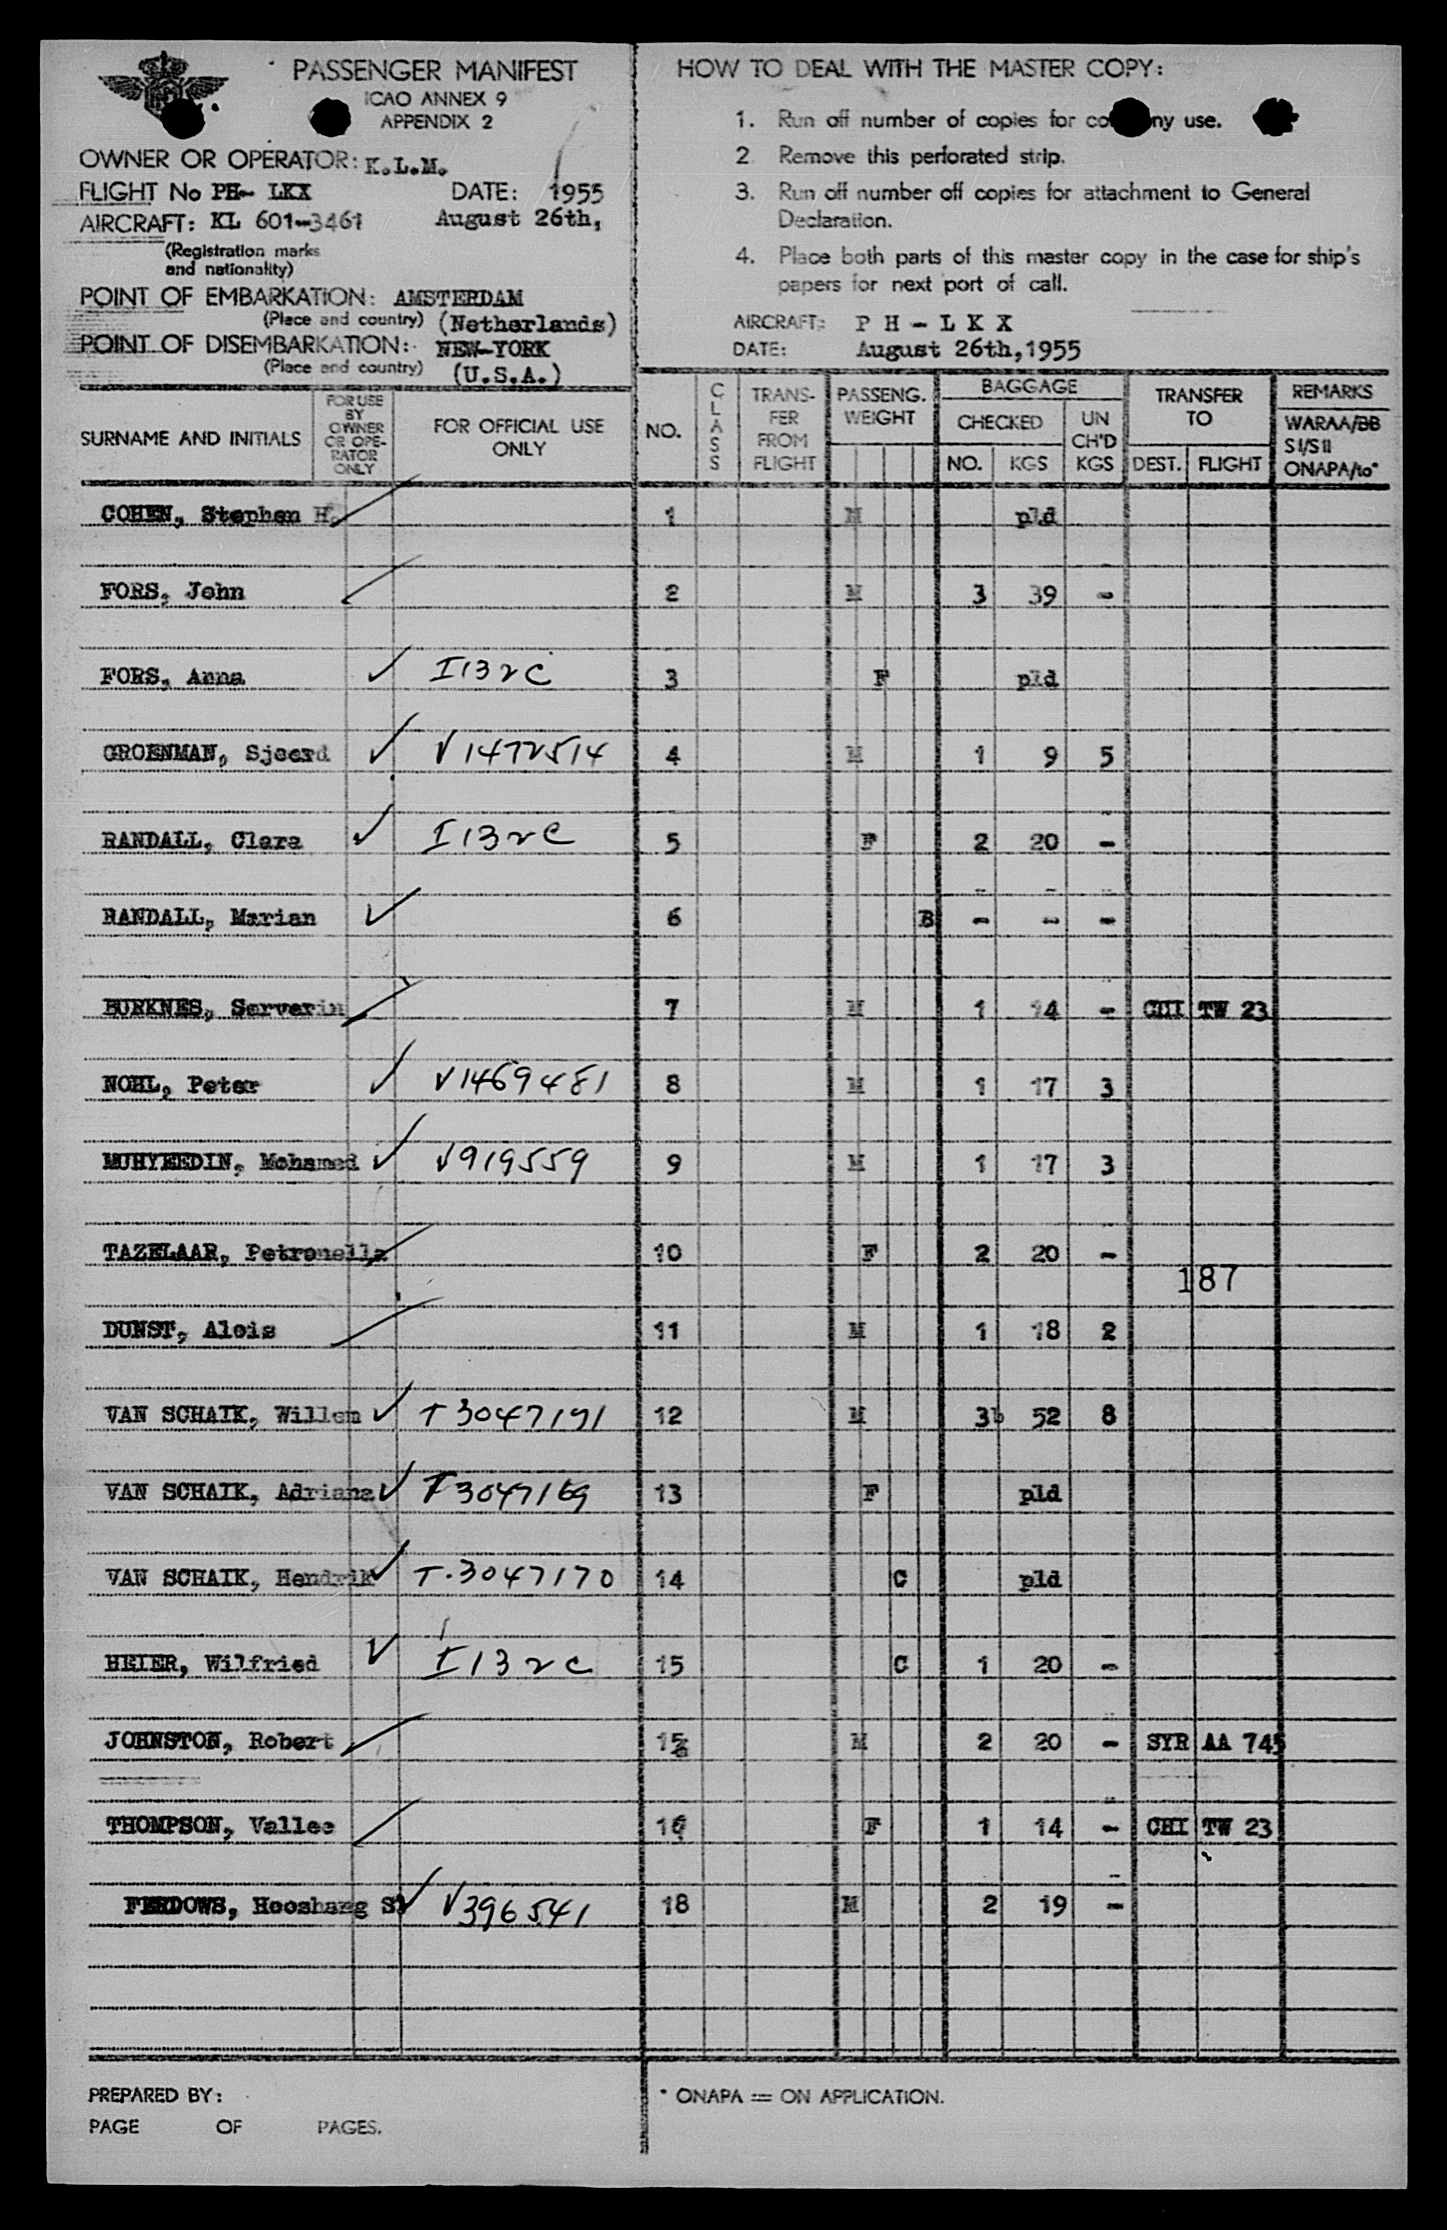 PASSENGER MANIFEST
ICAO ANNEX 9
APPENDIX 2
OWNER OR OPERATOR: K.L.M.
FLIGHT No PH- LKX DATE: 1955
AIRCRAFT: KL 601-3461 August 26th,
(Registration marks
and nationality)
POINT OF EMBARKATION: AMSTERDAM
(Place and country) (Netherlands)
POINT OF DISEMBARKATION: NEW-YORK
(Place and country) (U.S.A.)
HOW TO DEAL WITH THE MASTER COPY:
1. Run off number of copies for company use.
2 Remove this perforated strip.
3. Run off number off copies for attachment to General
Declaration.
4. Place both parts of this master copy in the case for ship's
papers for next port of call.
AIRCRAFT: P H - L K X
DATE: August 26th,1955
SURNAME AND INITIALS FOR USE BY OWNER OR OPE- RATOR ONLY FOR OFFICIAL USE ONLY NO. CLASS TRANS- FER FROM FLIGHT PASSENG. WEIGHT BAGGAGE CHECKED NO. KGS UN CH'D KGS TRANSFER TO DEST. FLIGHT REMARKS WARAA/BB SI/SII ONAPA/to*
COHEN, Stephen H. 1 M pld
FORS, John 2 M 3 39 -
FORS, Anna ✓ I132C 3 F pld
GROENMAN, Sjoerd ✓ V1472514 4 M 1 9 5
RANDALL, Clara ✓ I132C 5 F 2 20 -
RANDALL, Marian ✓ 6 B - - -
BURKNES, Serverin 7 M 1 14 - CHI TW 23
NOHL, Peter ✓ V1469481 8 M 1 17 3
MUHYEEDIN, Mohamed ✓ V919559 9 M 1 17 3
TAZELAAR, Petronella 10 F 2 20 -
187
DUNST, Alois 11 M 1 18 2
VAN SCHAIK, Willem ✓ T3047191 12 M 3b 52 8
VAN SCHAIK, Adriana ✓ T3047169 13 F pld
VAN SCHAIK, Hendrik ✓ T.3047170 14 C pld
HEIER, Wilfried ✓ I132C 15 C 1 20 -
JOHNSTON, Robert M 2 20 - SYR AA 745
THOMPSON, Vallee F 1 14 - CHI TW 23
FERDOWS, Hooshang ✓ V396541 18 M 2 19 -
PREPARED BY:
PAGE OF PAGES.
* ONAPA = ON APPLICATION.